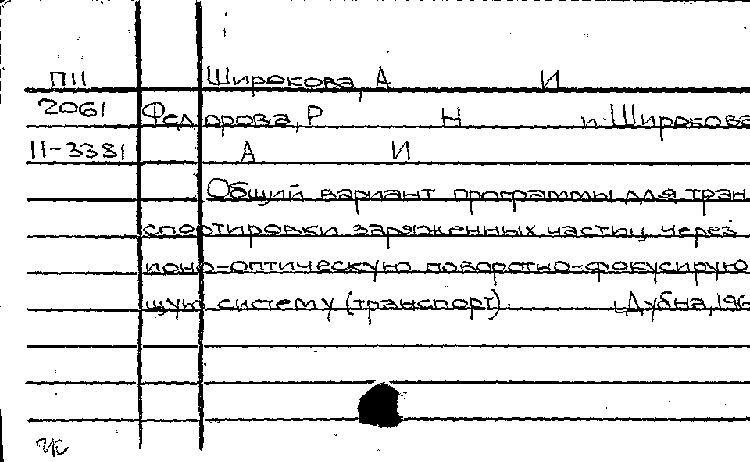 П11 Широкова, А И
2061 Федорова, Р Н и Широкова
11-3381 А И
Общий вариант программы для тран
спортировки заряженных частиц через
ионо-оптическую поворотно-фокусирую
щую систему (транспорт) Дубна, 196